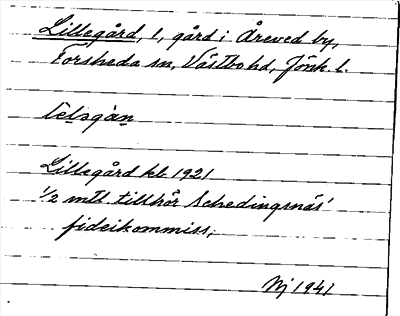 Lillegård, 1, gård i Åreved by,
Forsheda sn, Västbo hd, Jönk. l.
Lillegård kb 1921
1/2 mtl tillhör Schedingsnäs'
fideikommiss;
Nj 1941